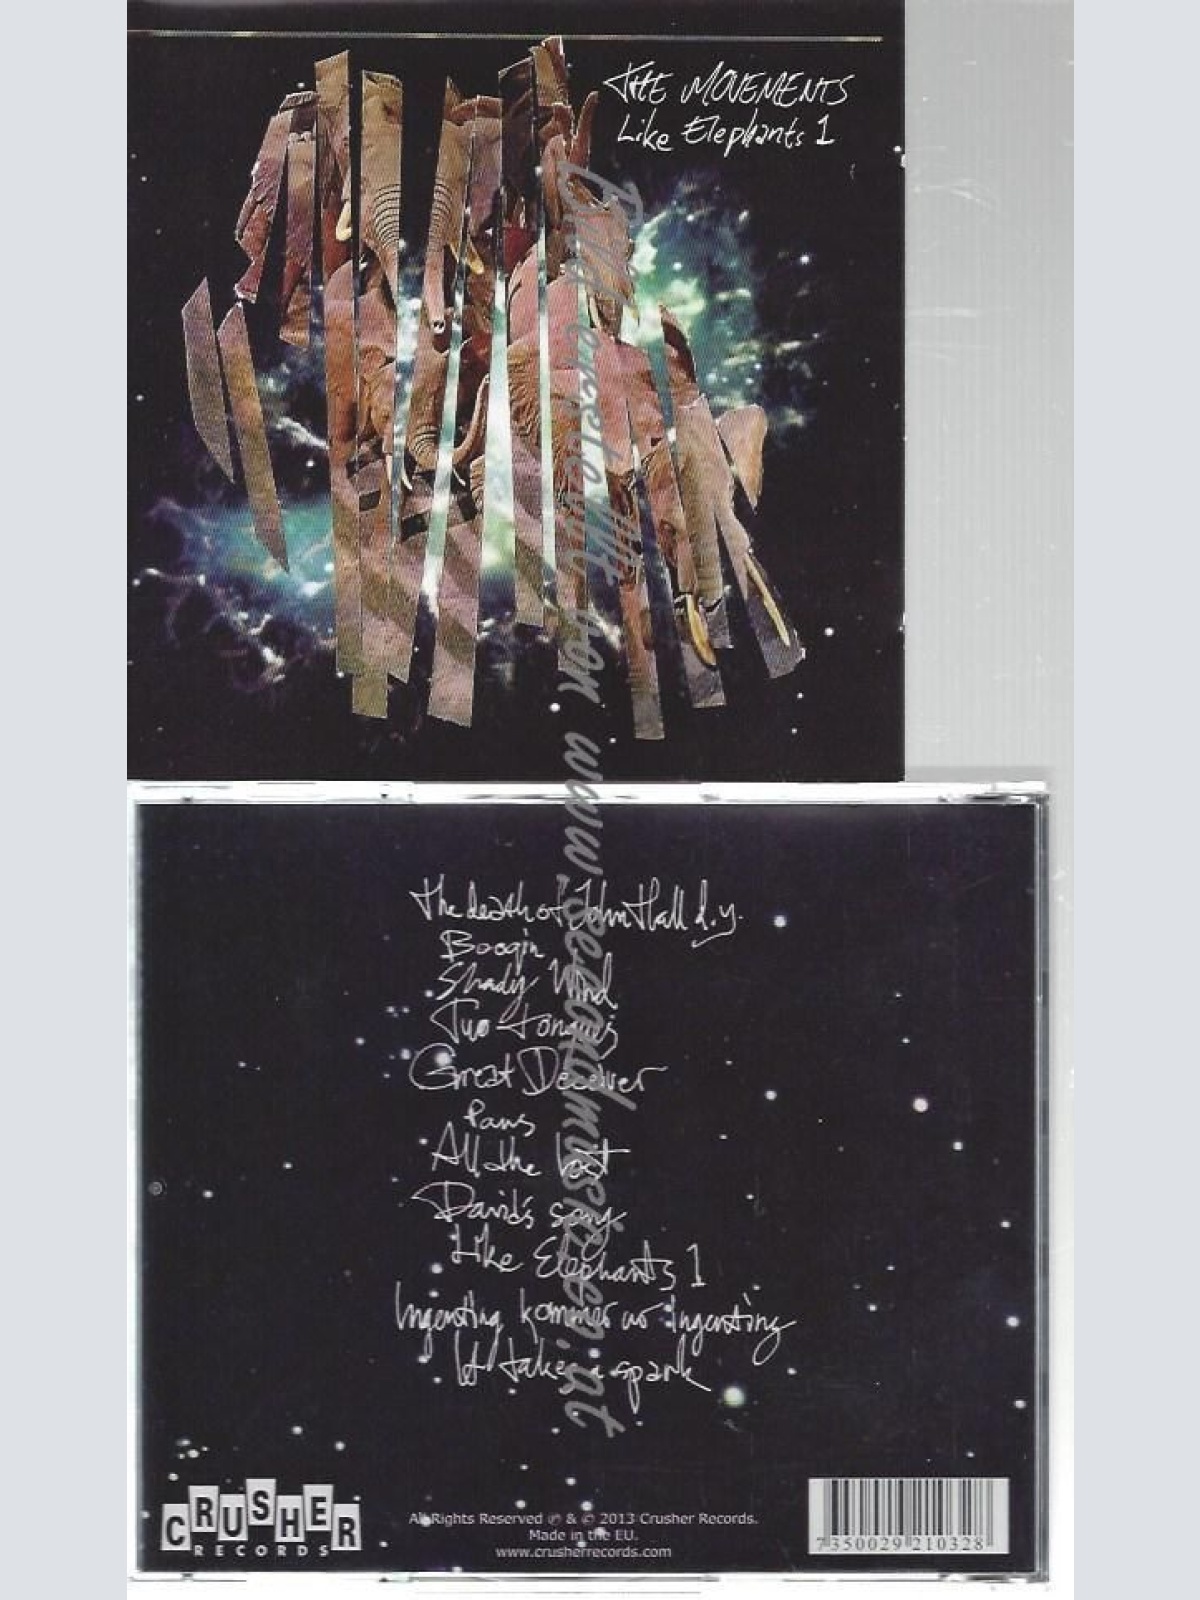 THE MOVEMENTS
Like Elephants 1
Bild erstellt von www.secondmusic.at
The death of John Hall d.y.
Boogin
Shady Wind
Two tongues
Great Deceiver
Pans
All the lost
David's song
Like Elephants 1
Ingenting kommer av ingenting
It takes a spark
CRUSHER
RECORDS
All Rights Reserved ℗ & © 2013 Crusher Records.
Made in the EU.
www.crusherrecords.com
7350029210328